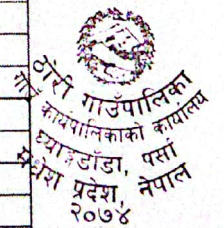 ठोरी गाउँपालिका
गाउँ कार्यपालिकाको कार्यालय
घ्याङडाँडा, पर्सा
मधेश प्रदेश, नेपाल
२०७४